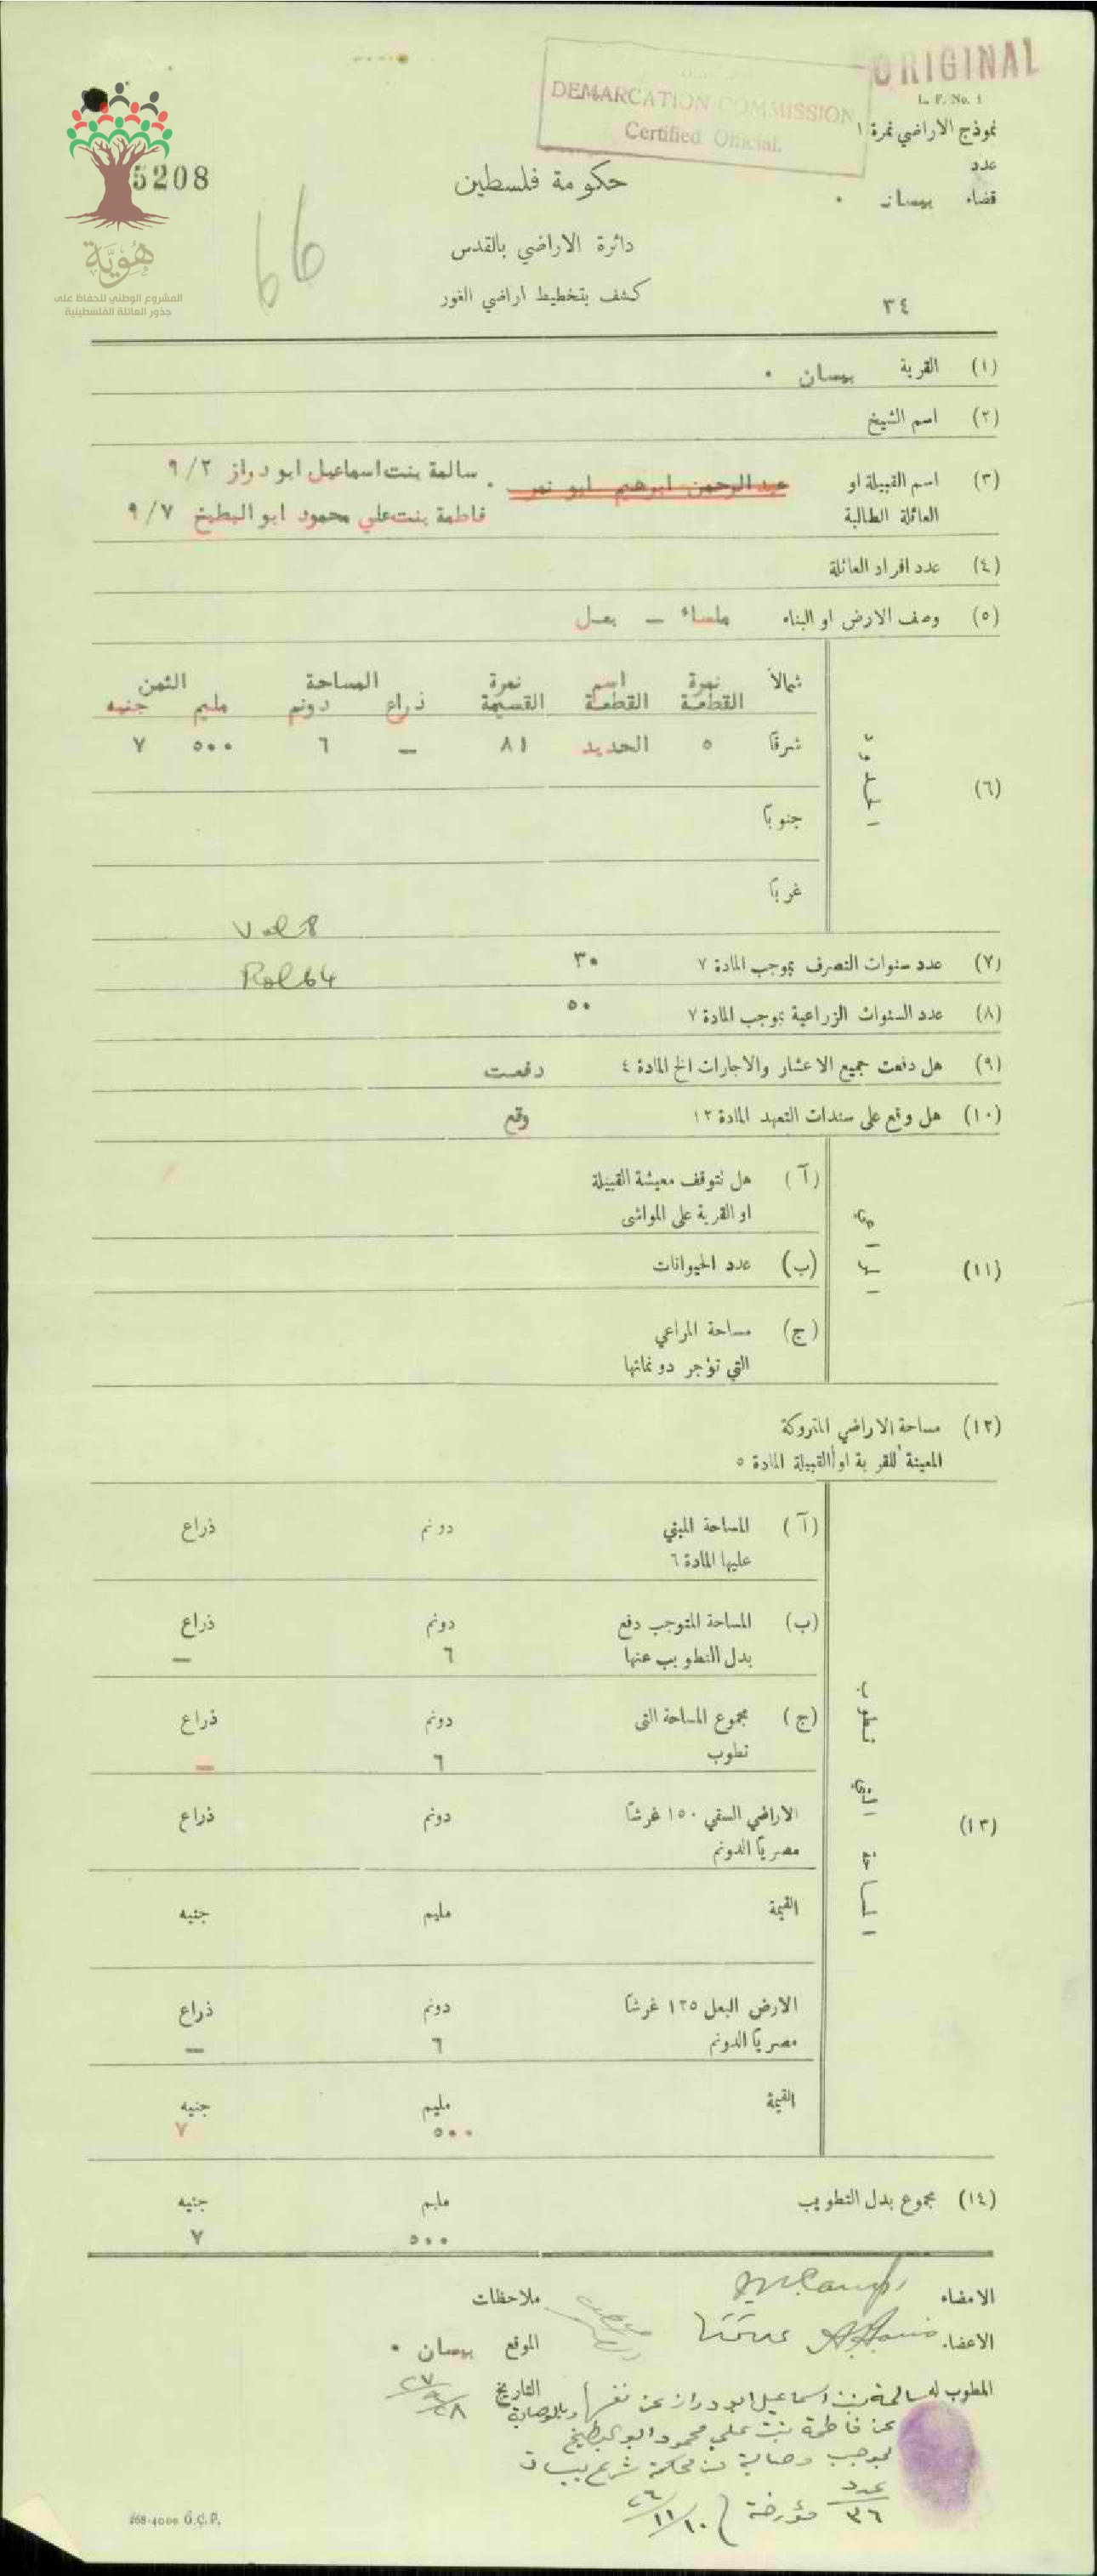 ORIGINAL
L. F. No. 1
DEMARCATION COMMISSION
Certified Official.
نموذج الاراضي نمرة ١
عدد
قضاء بيسان .
5208
هُوِيَّة
المشروع الوطني للحفاظ على
جذور العائلة الفلسطينية
66
حكومة فلسطين
دائرة الاراضي بالقدس
كشف بتخطيط اراضي الغور
٣٤
(١) القرية بيسان .
(٢) اسم الشيخ
(٣) اسم القبيلة او عبدالرحمن ابرهيم ابو نمر . سالمة بنت اسماعيل ابو دراز ٩/٢
العائلة الطالبة فاطمة بنت علي محمود ابو البطيخ ٩/٧
(٤) عدد افراد العائلة
(٥) وصف الارض او البناء ملساء – بعل
(٦) الحدود
شمالاً نمرة القطعة اسم القطعة نمرة القسيمة المساحة ذراع دونم الثمن مليم جنيه
شرقاً ٥ الحديد ٨١ – ٦ ٥٠٠ ٧
جنوباً
غرباً
Vol 8
(٧) عدد سنوات التصرف بموجب المادة ٧ ٣٠
Rol 64
(٨) عدد السنوات الزراعية بموجب المادة ٧ ٥٠
(٩) هل دفعت جميع الاعشار والاجارات الخ المادة ٤ دفعت
(١٠) هل وقع على سندات التعهد المادة ١٢ وقع
(١١)
(آ) هل تتوقف معيشة القبيلة
او القرية على المواشي
(ب) عدد الحيوانات
(ج) مساحة المراعي
التي تؤجر دونماتها
(١٢) مساحة الاراضي المتروكة
المعينة للقرية او القبيلة المادة ٥
(١٣) المساحة التي تطوب
(آ) المساحة المبني دونم ذراع
عليها المادة ٦
(ب) المساحة المتوجب دفع دونم ذراع
بدل التطويب عنها ٦ –
(ج) مجموع المساحة التي دونم ذراع
تطوب ٦ –
الاراضي السقي ١٥٠ غرشاً دونم ذراع
مصرياً الدونم
القيمة مليم جنيه
الارض البعل ١٢٥ غرشاً دونم ذراع
مصرياً الدونم ٦ –
القيمة مليم جنيه
٥٠٠ ٧
(١٤) مجموع بدل التطويب مليم جنيه
٥٠٠ ٧
الامضاء ملاحظات
الاعضاء الموقع بيسان .
المطوب له سالمة بنت اسماعيل ابو دراز عن نفسها وبالوصاية التاريخ
عن فاطمة بنت علي محمود ابو البطيخ
بموجب وصاية من محكمة شرع بيسان
عدد
٣٦ مؤرخة ١٠/١١/٢٦
268-4000 G.C.P.